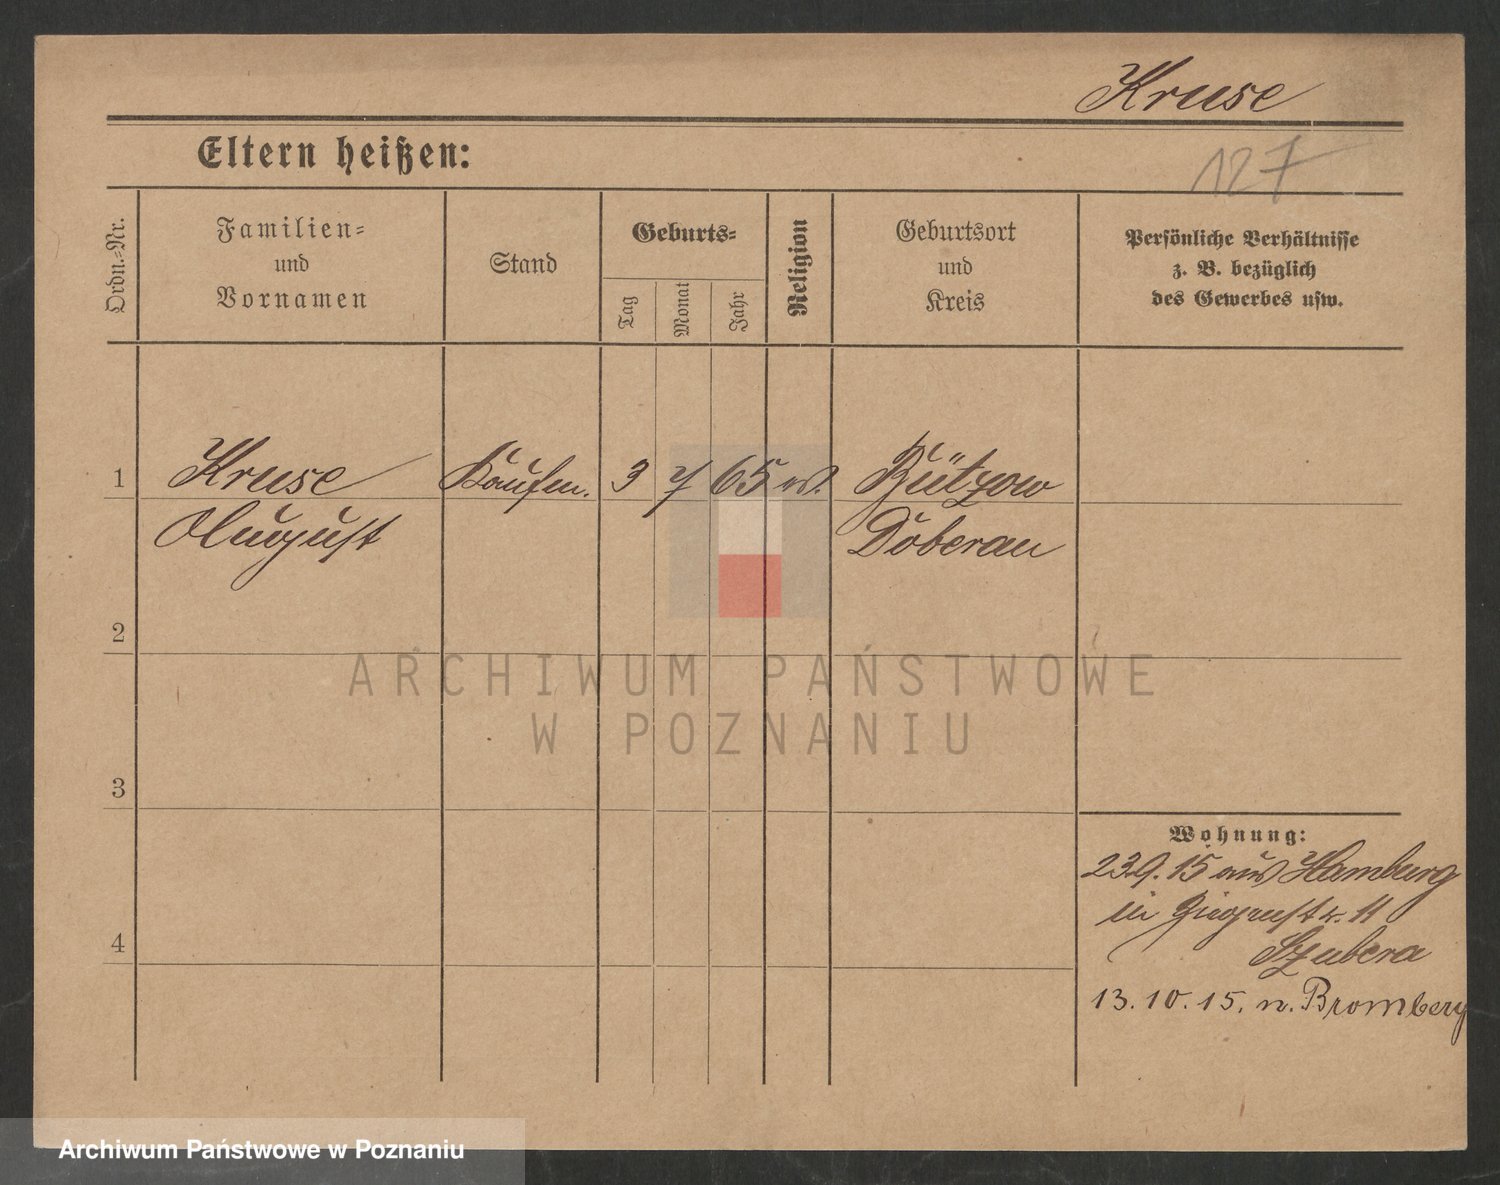 Kruse
127
Eltern heißen:
Ordn.-Nr.
Familien-
und
Vornamen
Stand
Geburts-
Tag
Monat
Jahr
Religion
Geburtsort
und
Kreis
Persönliche Verhältnisse
z. B. bezüglich
des Gewerbes usw.
1 Kruse Kaufm. 3 7 65 Bützow
August Doberan
2
3
4
Wohnung:
23.9.15 aus Hamburg
in 11
Szubera
13.10.15. n. Bromberg
ARCHIWUM PAŃSTWOWE
W POZNANIU
Archiwum Państwowe w Poznaniu